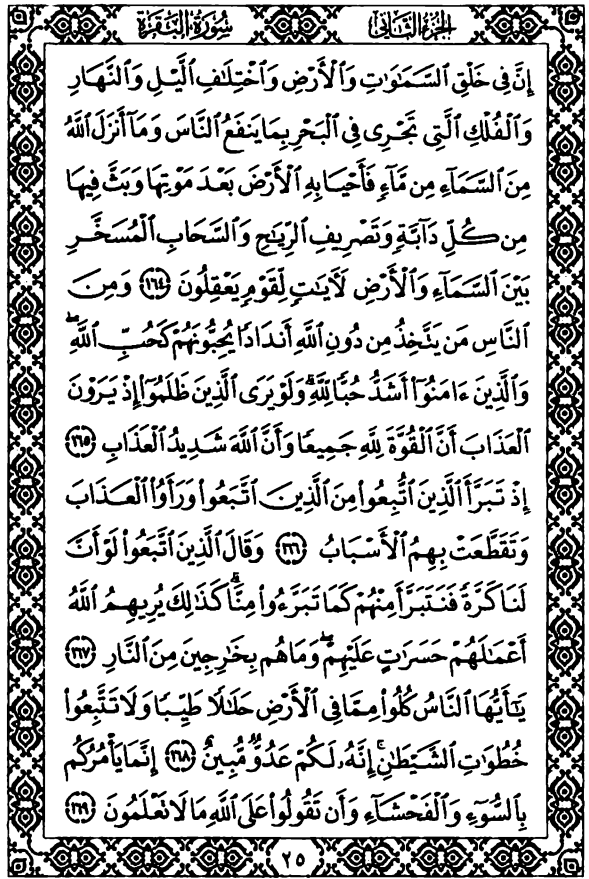 الجزء الثاني سورة البقرة
إِنَّ فِي خَلْقِ ٱلسَّمَٰوَٰتِ وَٱلْأَرْضِ وَٱخْتِلَٰفِ ٱلَّيْلِ وَٱلنَّهَارِ
وَٱلْفُلْكِ ٱلَّتِي تَجْرِي فِي ٱلْبَحْرِ بِمَا يَنفَعُ ٱلنَّاسَ وَمَآ أَنزَلَ ٱللَّهُ
مِنَ ٱلسَّمَآءِ مِن مَّآءٍ فَأَحْيَا بِهِ ٱلْأَرْضَ بَعْدَ مَوْتِهَا وَبَثَّ فِيهَا
مِن كُلِّ دَآبَّةٍ وَتَصْرِيفِ ٱلرِّيَٰحِ وَٱلسَّحَابِ ٱلْمُسَخَّرِ
بَيْنَ ٱلسَّمَآءِ وَٱلْأَرْضِ لَأٓيَٰتٍ لِّقَوْمٍ يَعْقِلُونَ ١٦٤ وَمِنَ
ٱلنَّاسِ مَن يَتَّخِذُ مِن دُونِ ٱللَّهِ أَندَادًا يُحِبُّونَهُمْ كَحُبِّ ٱللَّهِۖ
وَٱلَّذِينَ ءَامَنُوٓا۟ أَشَدُّ حُبًّا لِّلَّهِۗ وَلَوْ يَرَى ٱلَّذِينَ ظَلَمُوٓا۟ إِذْ يَرَوْنَ
ٱلْعَذَابَ أَنَّ ٱلْقُوَّةَ لِلَّهِ جَمِيعًا وَأَنَّ ٱللَّهَ شَدِيدُ ٱلْعَذَابِ ١٦٥
إِذْ تَبَرَّأَ ٱلَّذِينَ ٱتُّبِعُوا۟ مِنَ ٱلَّذِينَ ٱتَّبَعُوا۟ وَرَأَوُا۟ ٱلْعَذَابَ
وَتَقَطَّعَتْ بِهِمُ ٱلْأَسْبَابُ ١٦٦ وَقَالَ ٱلَّذِينَ ٱتَّبَعُوا۟ لَوْ أَنَّ
لَنَا كَرَّةً فَنَتَبَرَّأَ مِنْهُمْ كَمَا تَبَرَّءُوا۟ مِنَّاۗ كَذَٰلِكَ يُرِيهِمُ ٱللَّهُ
أَعْمَٰلَهُمْ حَسَرَٰتٍ عَلَيْهِمْۖ وَمَا هُم بِخَٰرِجِينَ مِنَ ٱلنَّارِ ١٦٧
يَٰٓأَيُّهَا ٱلنَّاسُ كُلُوا۟ مِمَّا فِي ٱلْأَرْضِ حَلَٰلًا طَيِّبًا وَلَا تَتَّبِعُوا۟
خُطُوَٰتِ ٱلشَّيْطَٰنِۚ إِنَّهُۥ لَكُمْ عَدُوٌّ مُّبِينٌ ١٦٨ إِنَّمَا يَأْمُرُكُم
بِٱلسُّوٓءِ وَٱلْفَحْشَآءِ وَأَن تَقُولُوا۟ عَلَى ٱللَّهِ مَا لَا تَعْلَمُونَ ١٦٩
٢٥